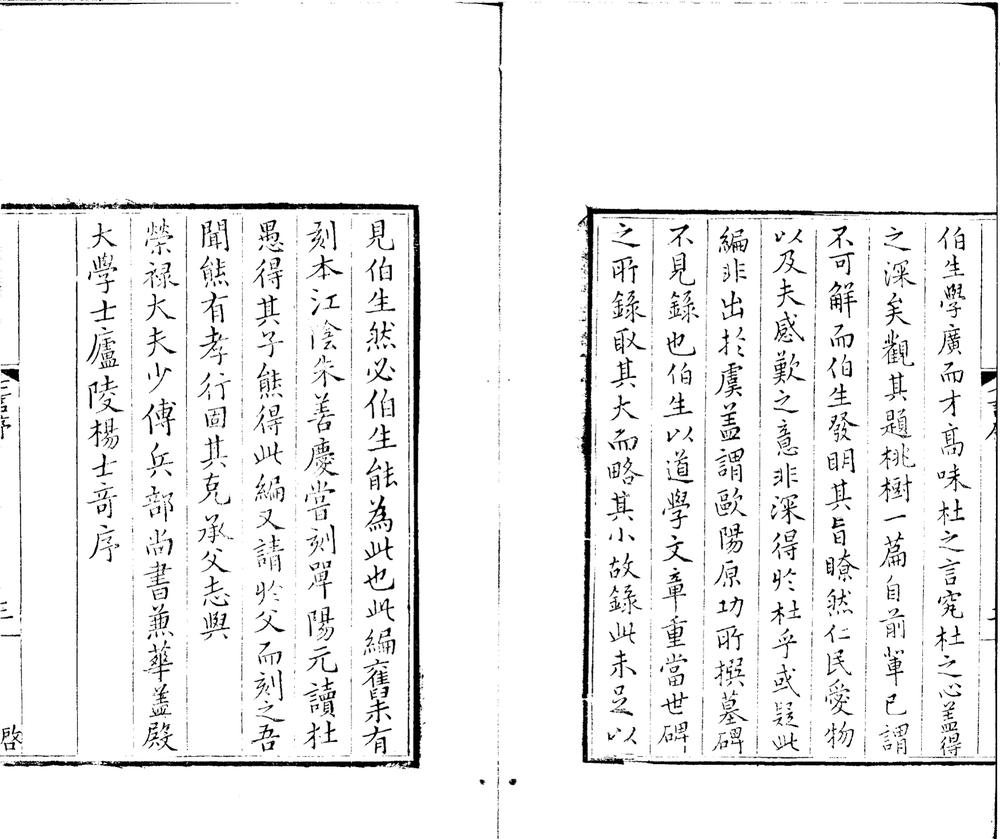 伯生學廣而才髙味杜之言究杜之心盖得
之深矣觀其題桃樹一篇自前輩已謂
不可解而伯生發明其旨瞭然仁民愛物
以及夫感歎之意非深得於杜乎或疑此
編非出於虞盖謂歐陽原功所撰墓碑
不見錄也伯生以道學文章重當世碑
之所錄取其大而略其小故錄此未足以
見伯生然必伯生能為此也此編舊未有
刻本江陰朱善慶嘗刻單陽元讀杜
愚得其子熊得此編又請於父而刻之吾
聞熊有孝行固其克承父志與
榮禄大夫少傅兵部尚書兼華盖殿
大學士廬陵楊士竒序
三
啓